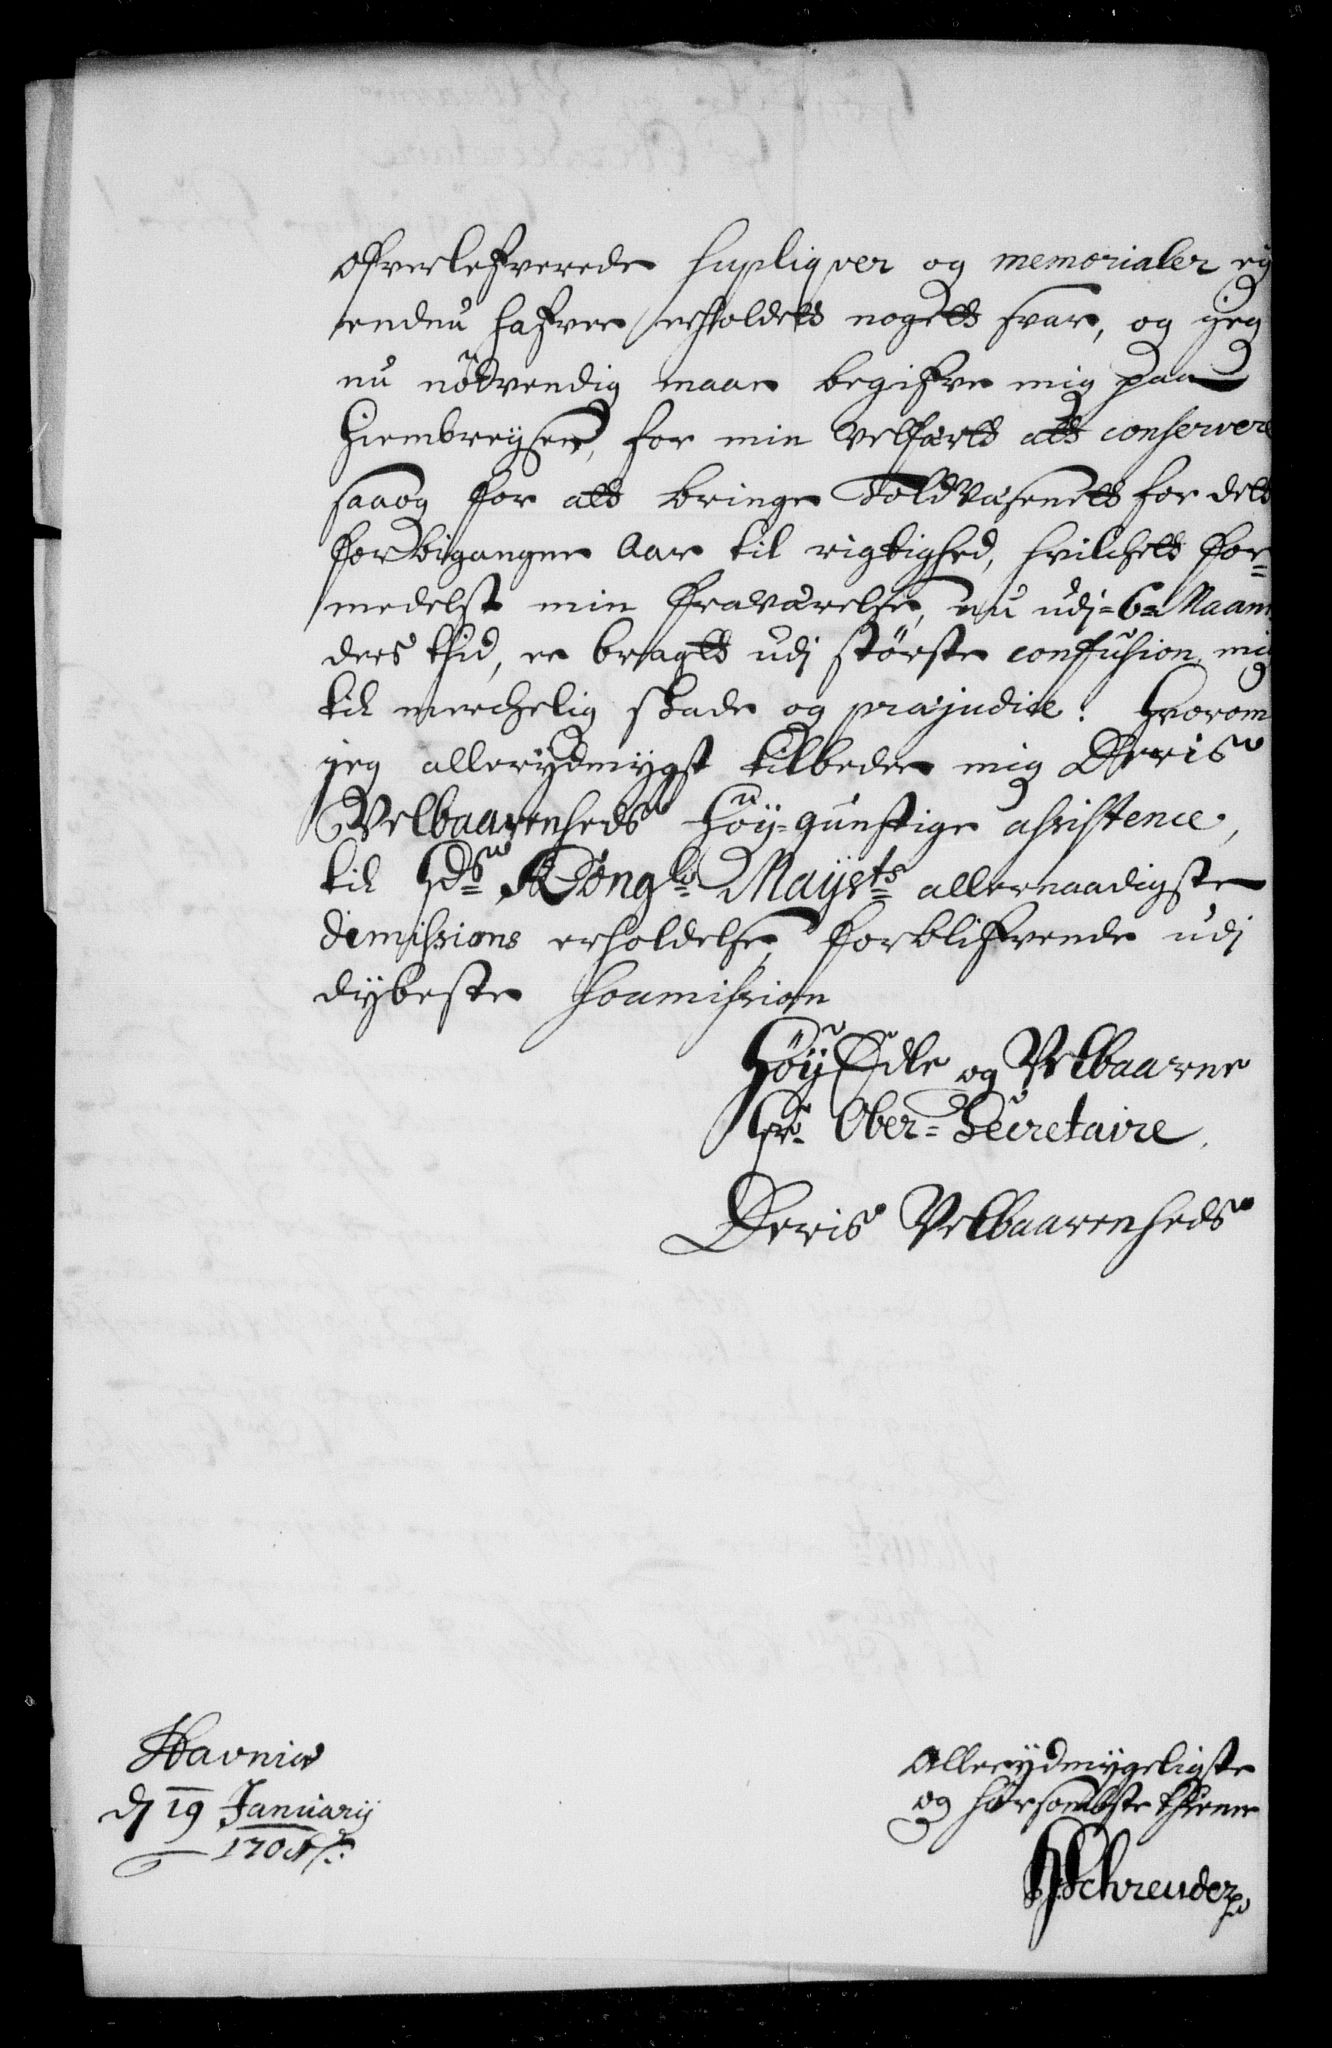 ofverlefverede supliqver og memorialer ey
endnu hafver erholdett nogett svar, og jeg
nu nödvendig maae begifve mig paa
hiembreysen, for min velfærtt att conservere
saaog for att bringe Toldvæsenett for dett
forbigangne Aar til rigtighed, hvilchett for=
medelst min fraværelse, nu udj=6=Maane
ders thid, er bragtt udj störste confusion, mig
til merchelig skade og præjudice. Hvorom
jeg allerydmygst tilbeder mig Deris
Velbaarenheds Höy=gunstige assistence,
til Hds Kongl Mayts allernaadigste
dimissions erholdelse, forblifvende udj
dybeste soumission
Höy Edle og Velbaarne
Hr. Ober=Secretaire,
Deris Velbaarenheds
Havniæ
dj 19 Januarij
Allerydmygeligste
og hörsombste thienne
HSchreuder